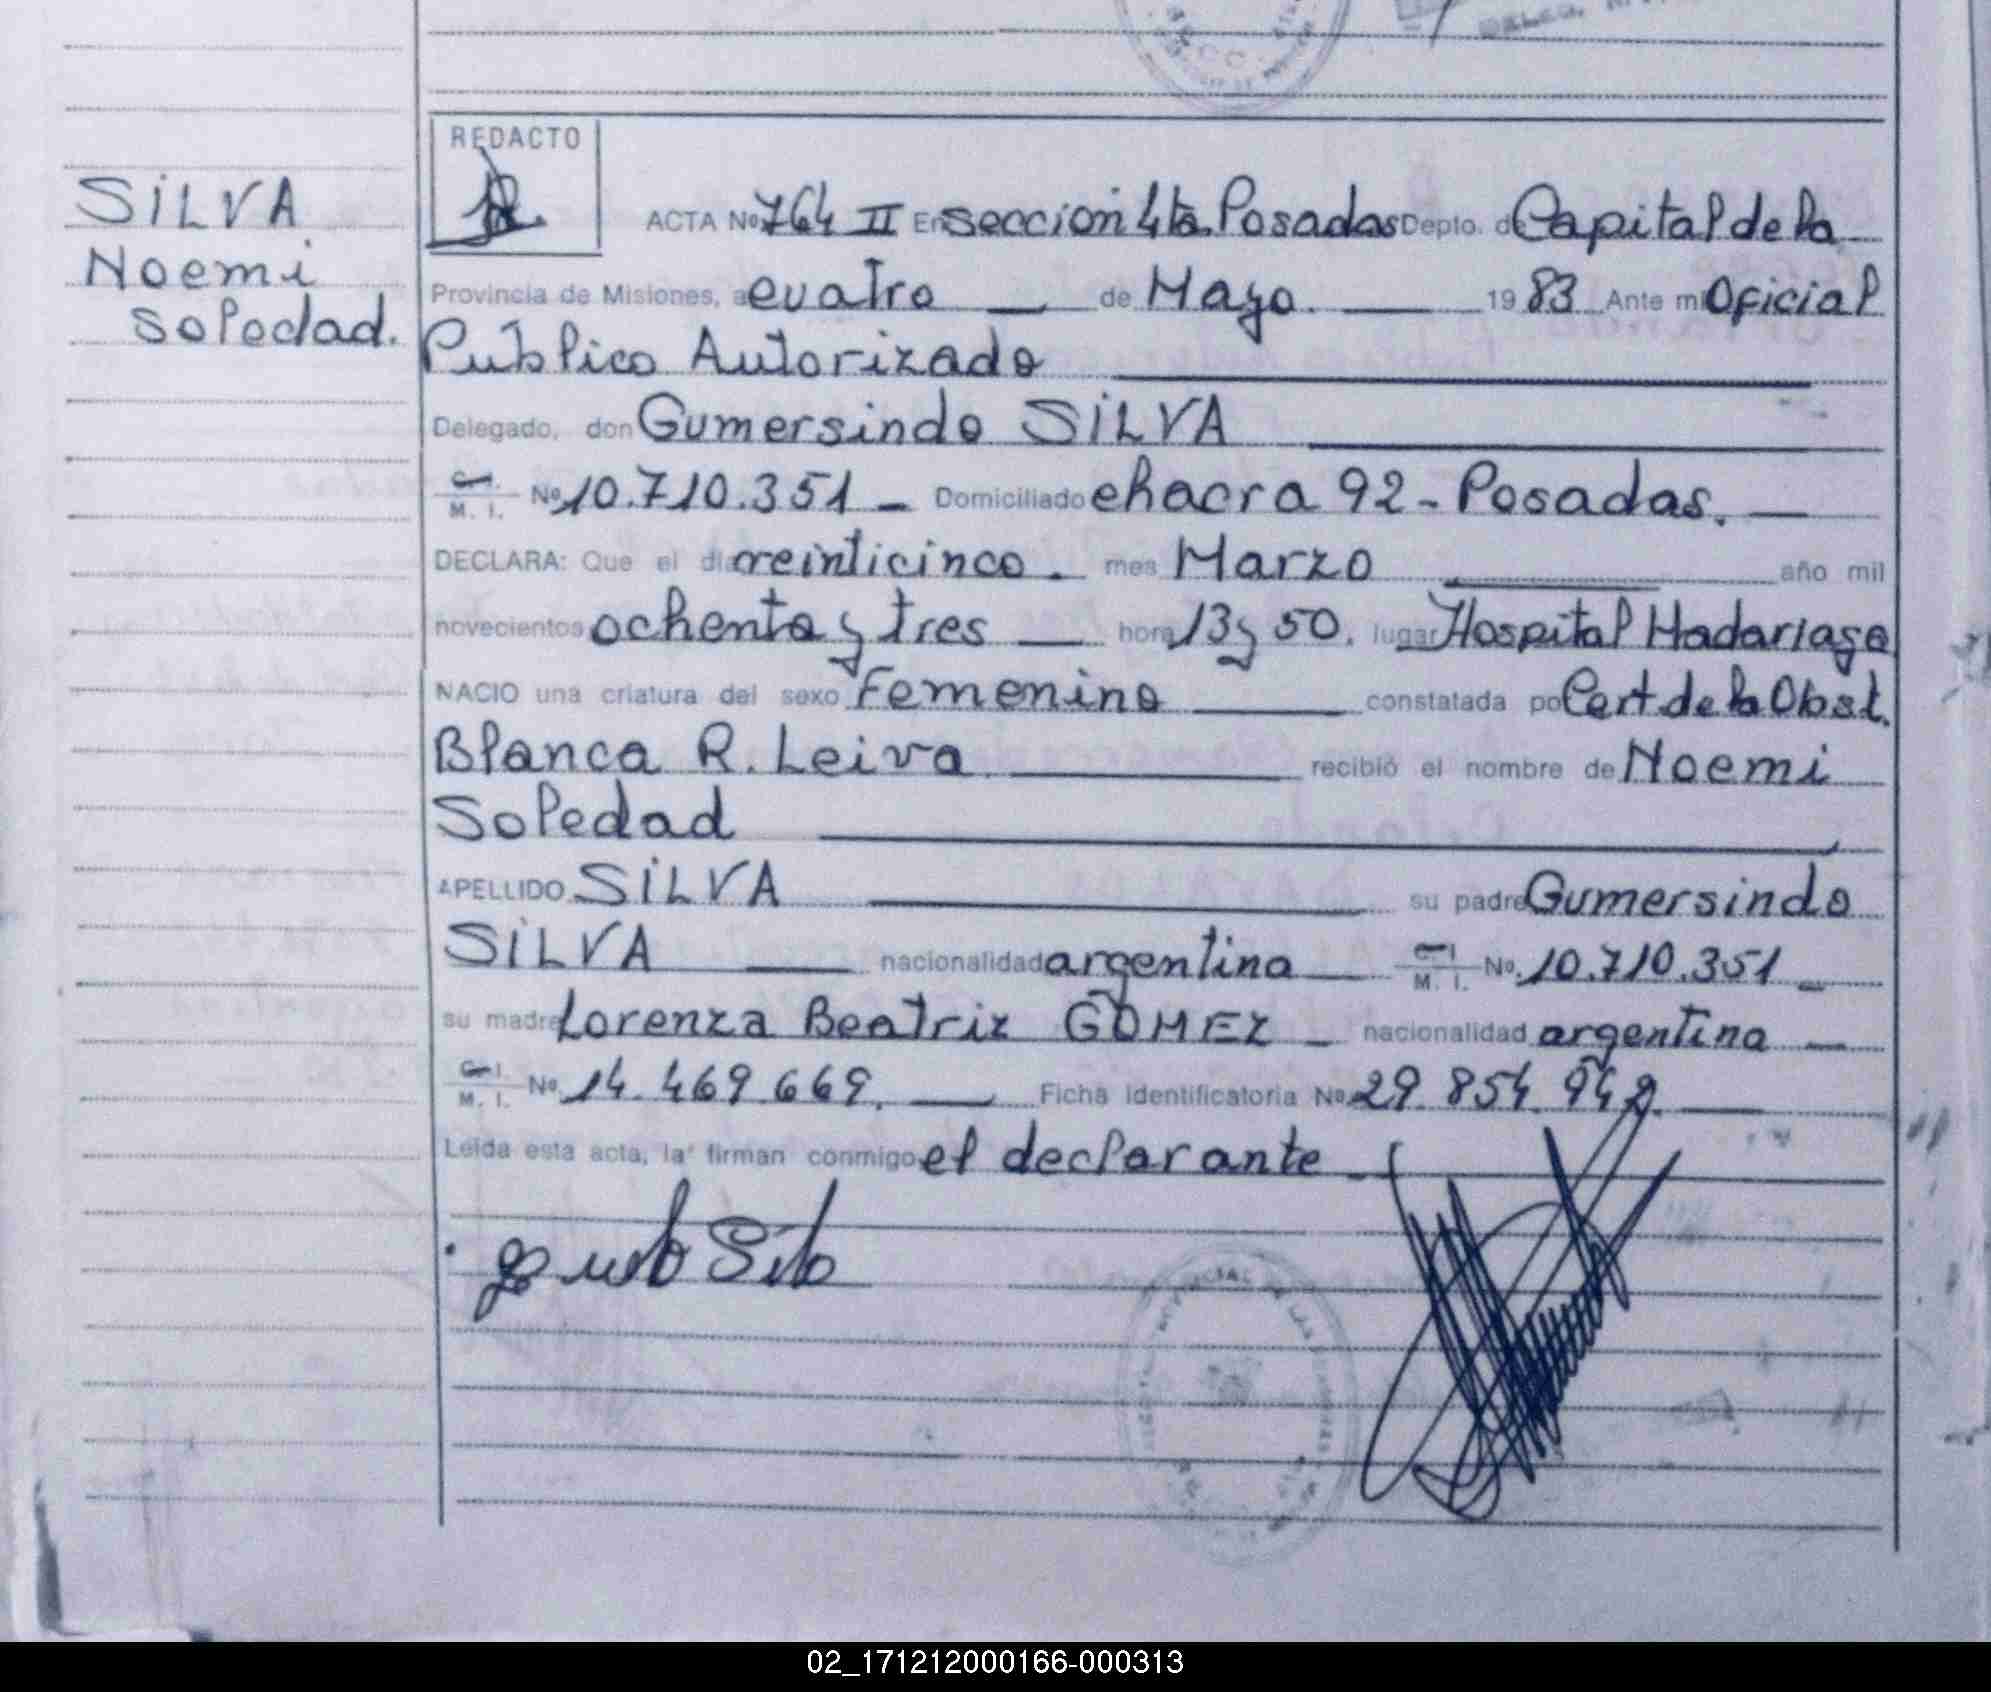 SILVA
Noemi
Soledad.
REDACTO
ACTA Nº 764 II En seccion 4ta. Posadas Depto. de Capital de la
Provincia de Misiones, a cuatro de Mayo. 1983 Ante mi Oficial
Publico Autorizado
Delegado, don Gumersindo SILVA
C.I. M. I. Nº 10.710.351 - Domiciliado chacra 92 - Posadas.
DECLARA: Que el dia veinticinco. mes Marzo año mil
novecientos ochenta y tres hora 13 y 50. lugar Hospital Madariaga
NACIO una criatura del sexo Femenino constatada por Cert. de la Obst.
Blanca R. Leiva recibió el nombre de Noemi
Soledad
APELLIDO SILVA su padre Gumersindo
SILVA nacionalidad argentina C.I. M. I. Nº 10.710.351
su madre Lorenza Beatriz GOMEZ nacionalidad argentina
C.I. M. I. Nº 14.469.669. Ficha Identificatoria Nº 29.854.942.
Leida esta acta, la firman conmigo el declarante
02_171212000166-000313